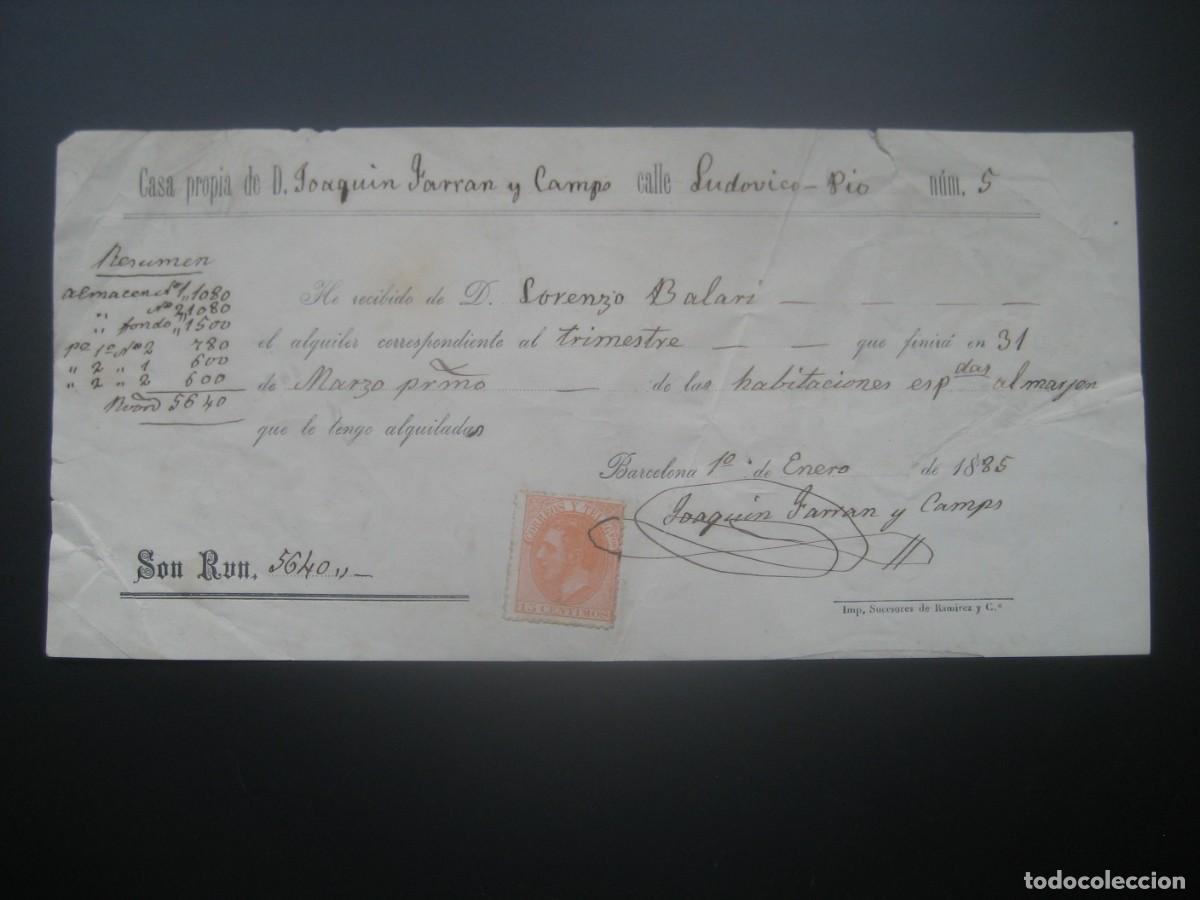 Casa propia de D. Joaquin Farran y Camps calle Ludovico-Pio núm. 5
Resumen
almacen Nº 1 „ 1080
„ Nº 2 „ 1080
„ fondo „ 1500
pº 1º Nº 2 780
„ 2 „ 1 600
„ 2 „ 2 600
Rvon 5640
He recibido de D. Lorenzo Balari
el alquiler correspondiente al trimestre que finirá en 31
de Marzo prmo de las habitaciones espdas al marjen
que le tengo alquiladas
Barcelona 1º de Enero de 1885
Joaquin Farran y Camps
CORREOS Y TELEGRAFOS
15 CENTIMOS
Son Rvn. 5640 „ —
Imp. Sucesores de Ramirez y C.ª
todocoleccion